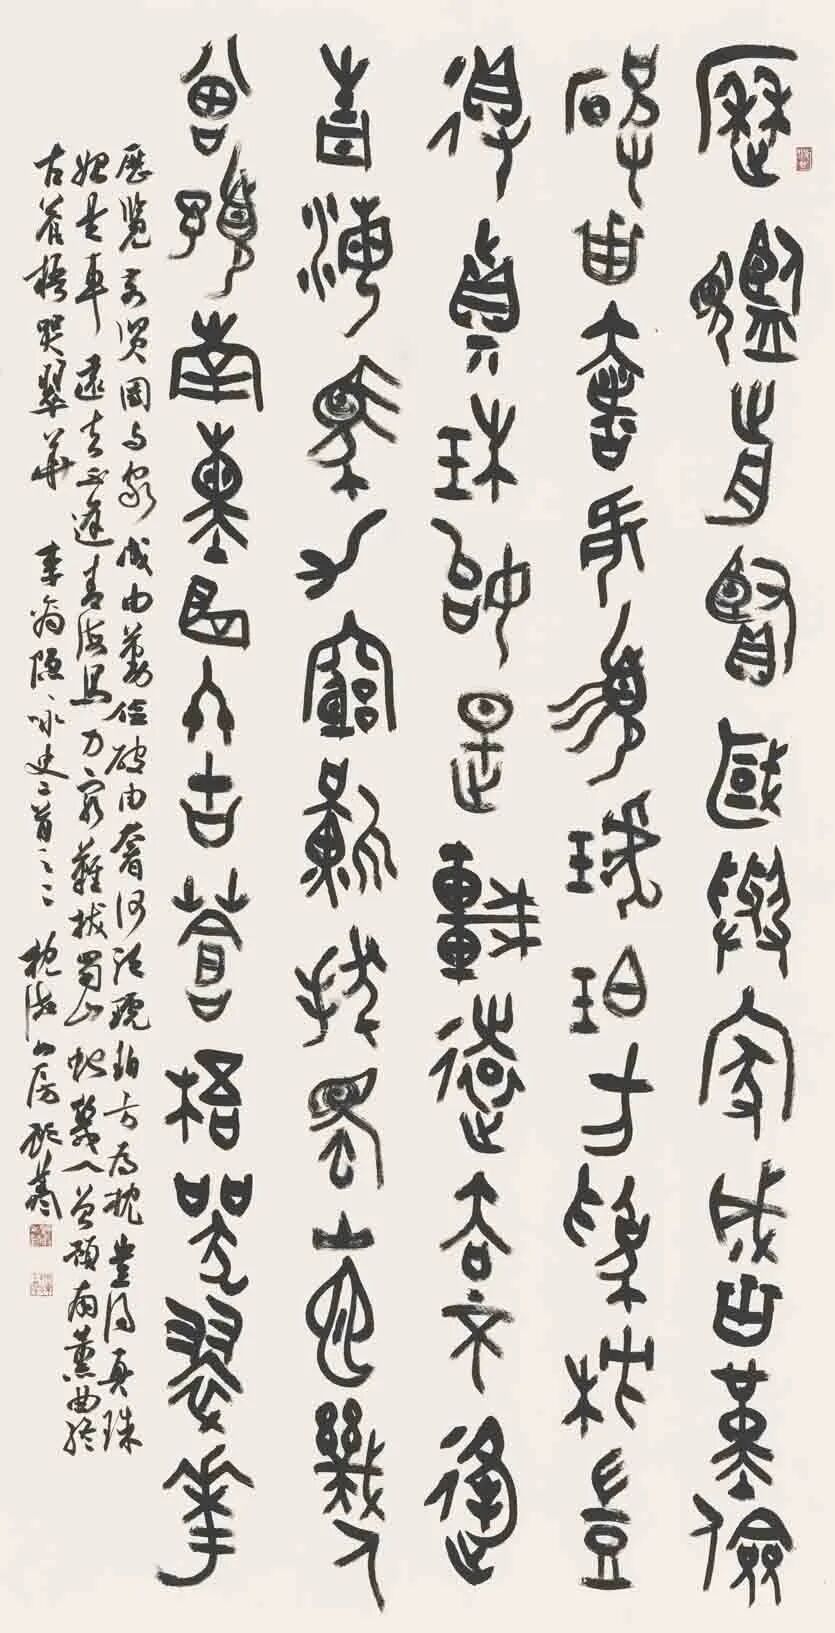 歷覽前賢國與家成由勤儉
破由奢何須琥珀方為枕豈
得真珠始是車遠去不逢
青海馬力窮難拔蜀山蛇幾人
曾預南薰曲終古蒼梧哭翠華
歷覽前賢國与家成由勤儉破由奢何須琥珀方為枕豈得真珠
始是車遠去不逢青海馬力窮難拔蜀山蛇幾人曾預南薰曲終
古蒼梧哭翠華 李商隱咏史二首之二